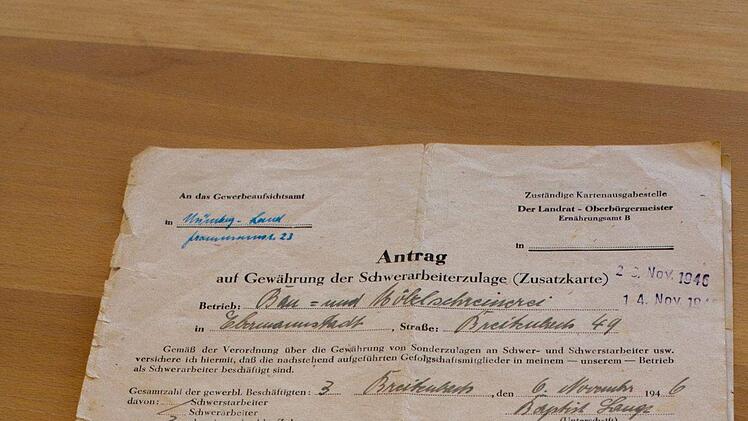 An das Gewerbeaufsichtsamt
in Nürnbg.-Land
23
Zuständige Kartenausgabestelle
Der Landrat - Oberbürgermeister
Ernährungsamt B
in
Antrag
auf Gewährung der Schwerarbeiterzulage (Zusatzkarte)
Nov. 1946
14. Nov. 194
Betrieb: Bau = und Möbelschreinerei
in Ebermannstadt, Straße: Breitenbach 49
Gemäß der Verordnung über die Gewährung von Sonderzulagen an Schwer- und Schwerstarbeiter usw.
versichere ich hiermit, daß die nachstehend aufgeführten Gefolgschaftsmitglieder in meinem — unserem — Betrieb
als Schwerarbeiter beschäftigt sind.
Gesamtzahl der gewerbl. Beschäftigten: 3 Breitenbach, den 6. November 1946
davon: Schwerstarbeiter Baptist Lange
Schwerarbeiter (Unterschrift)